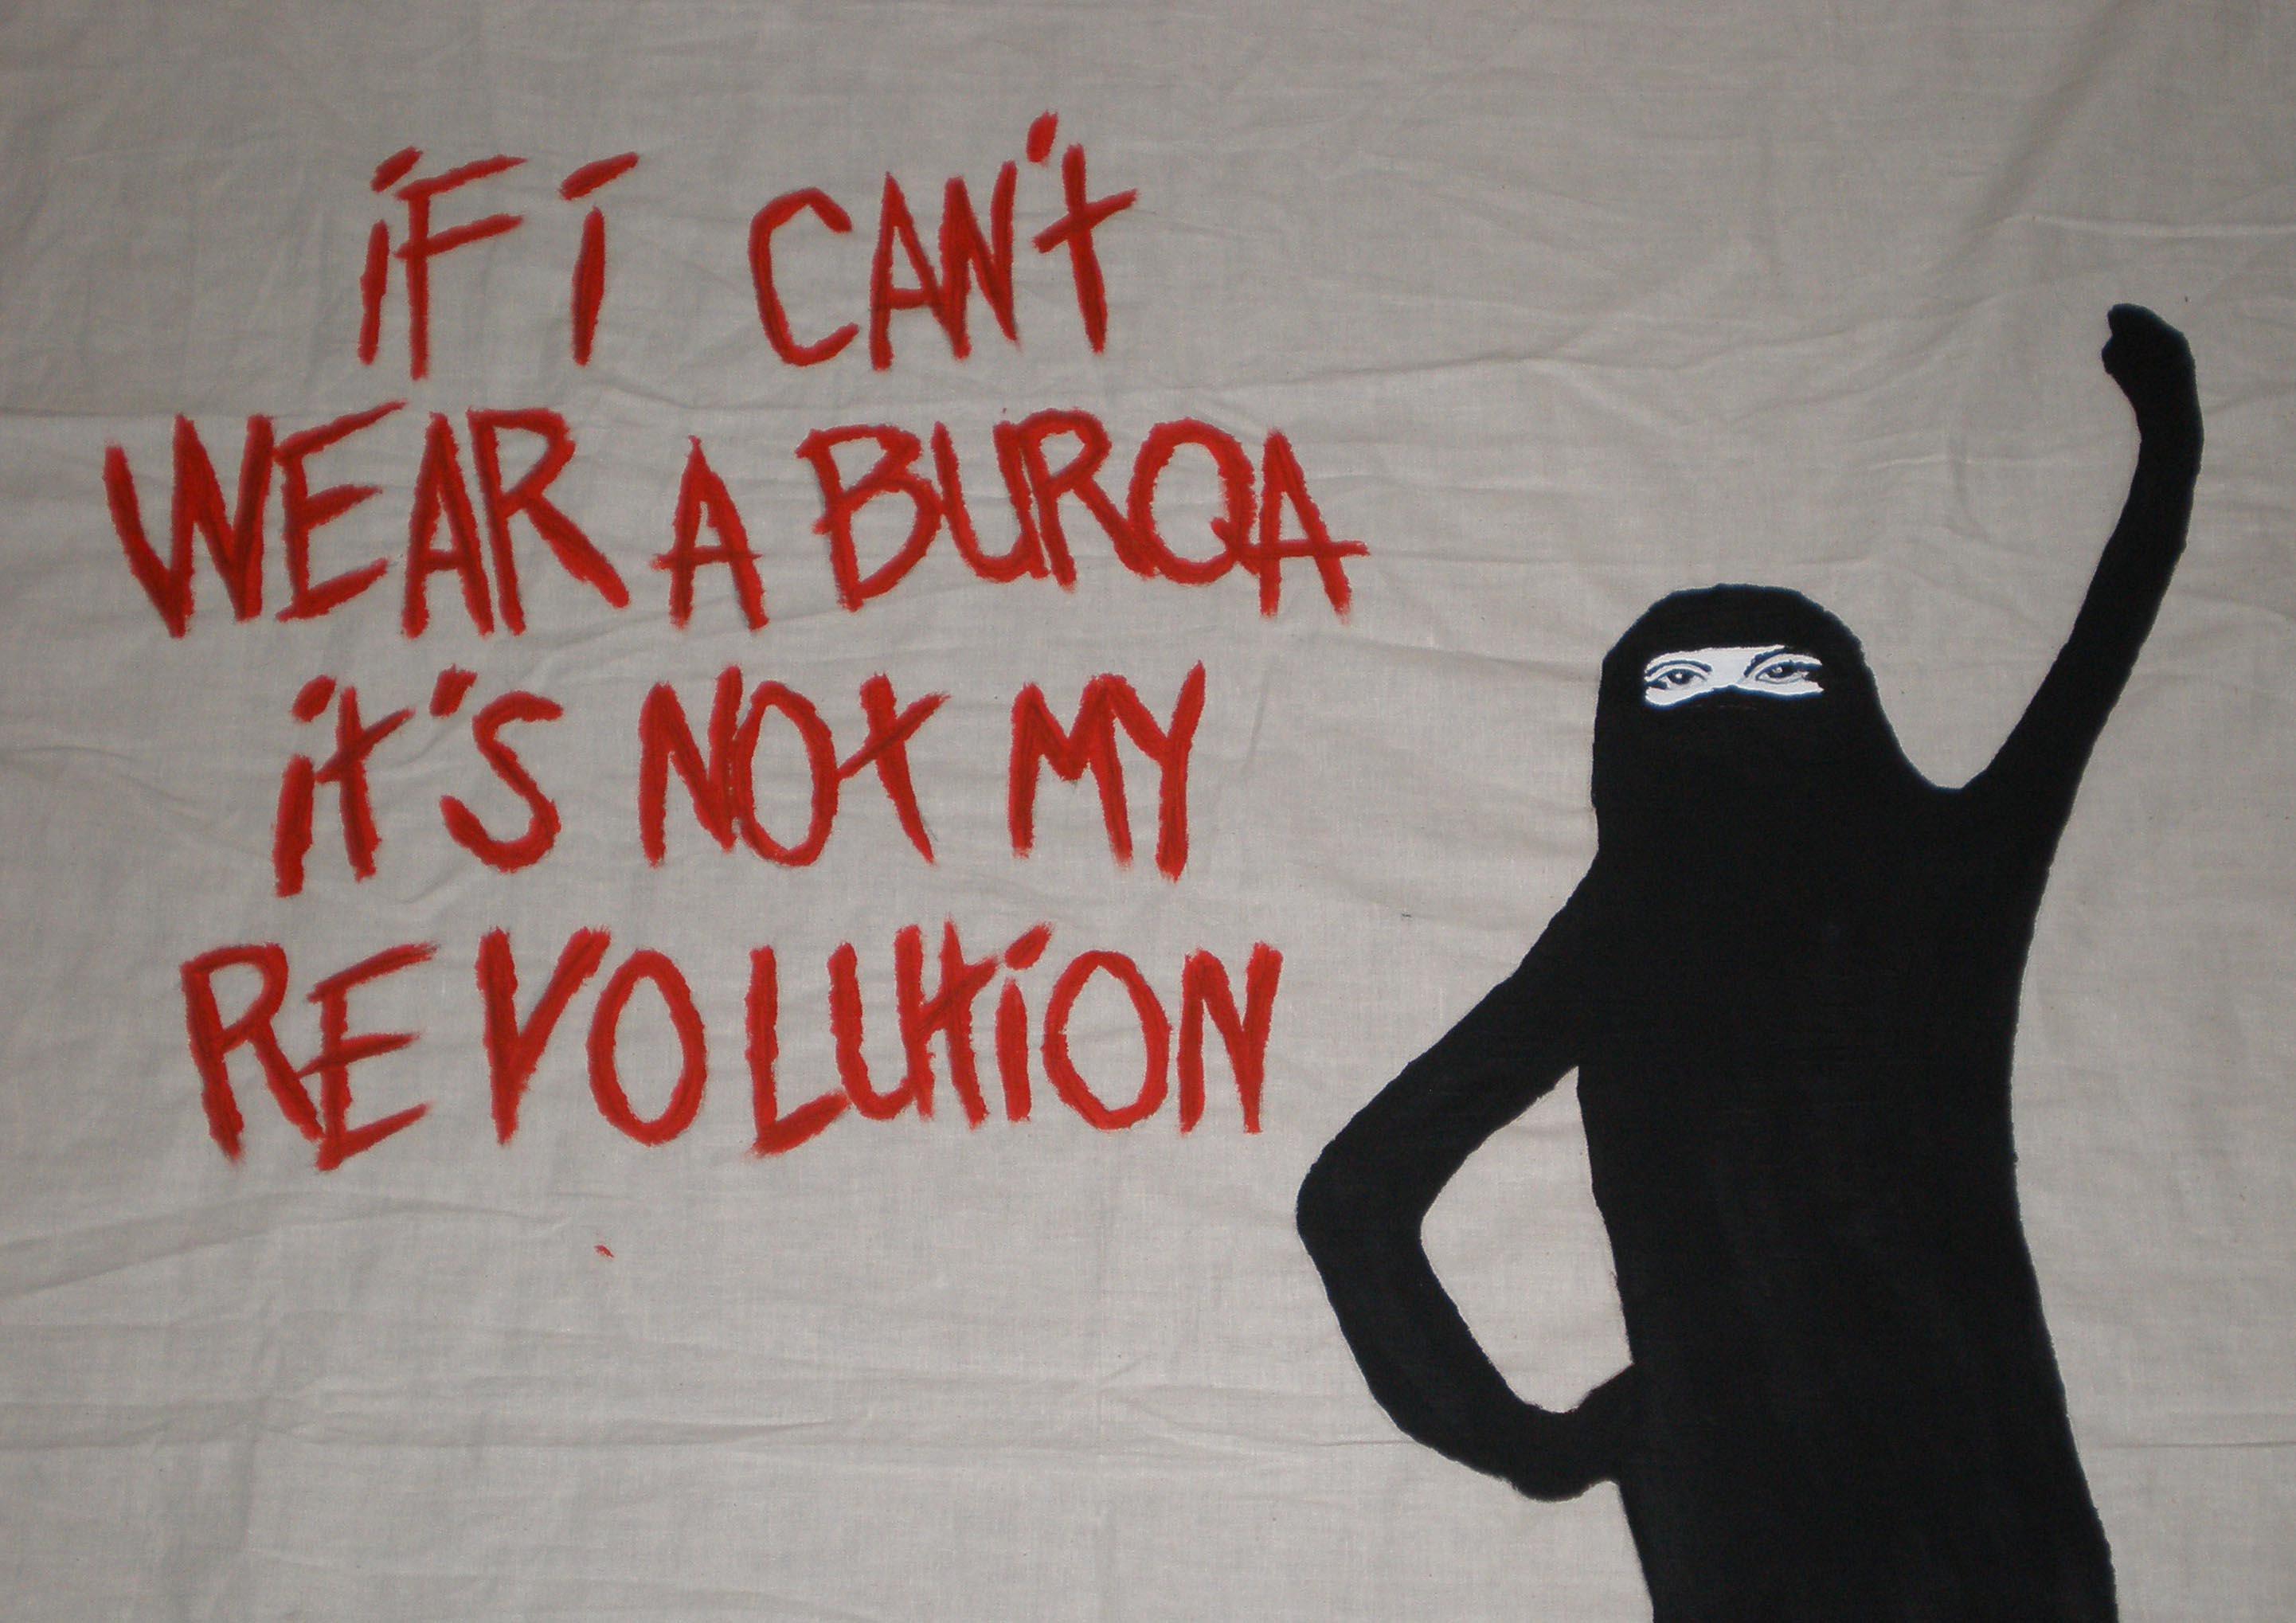 iF i CAN't
WEAR A BURQA
it's NOt MY
REVOLUtiON